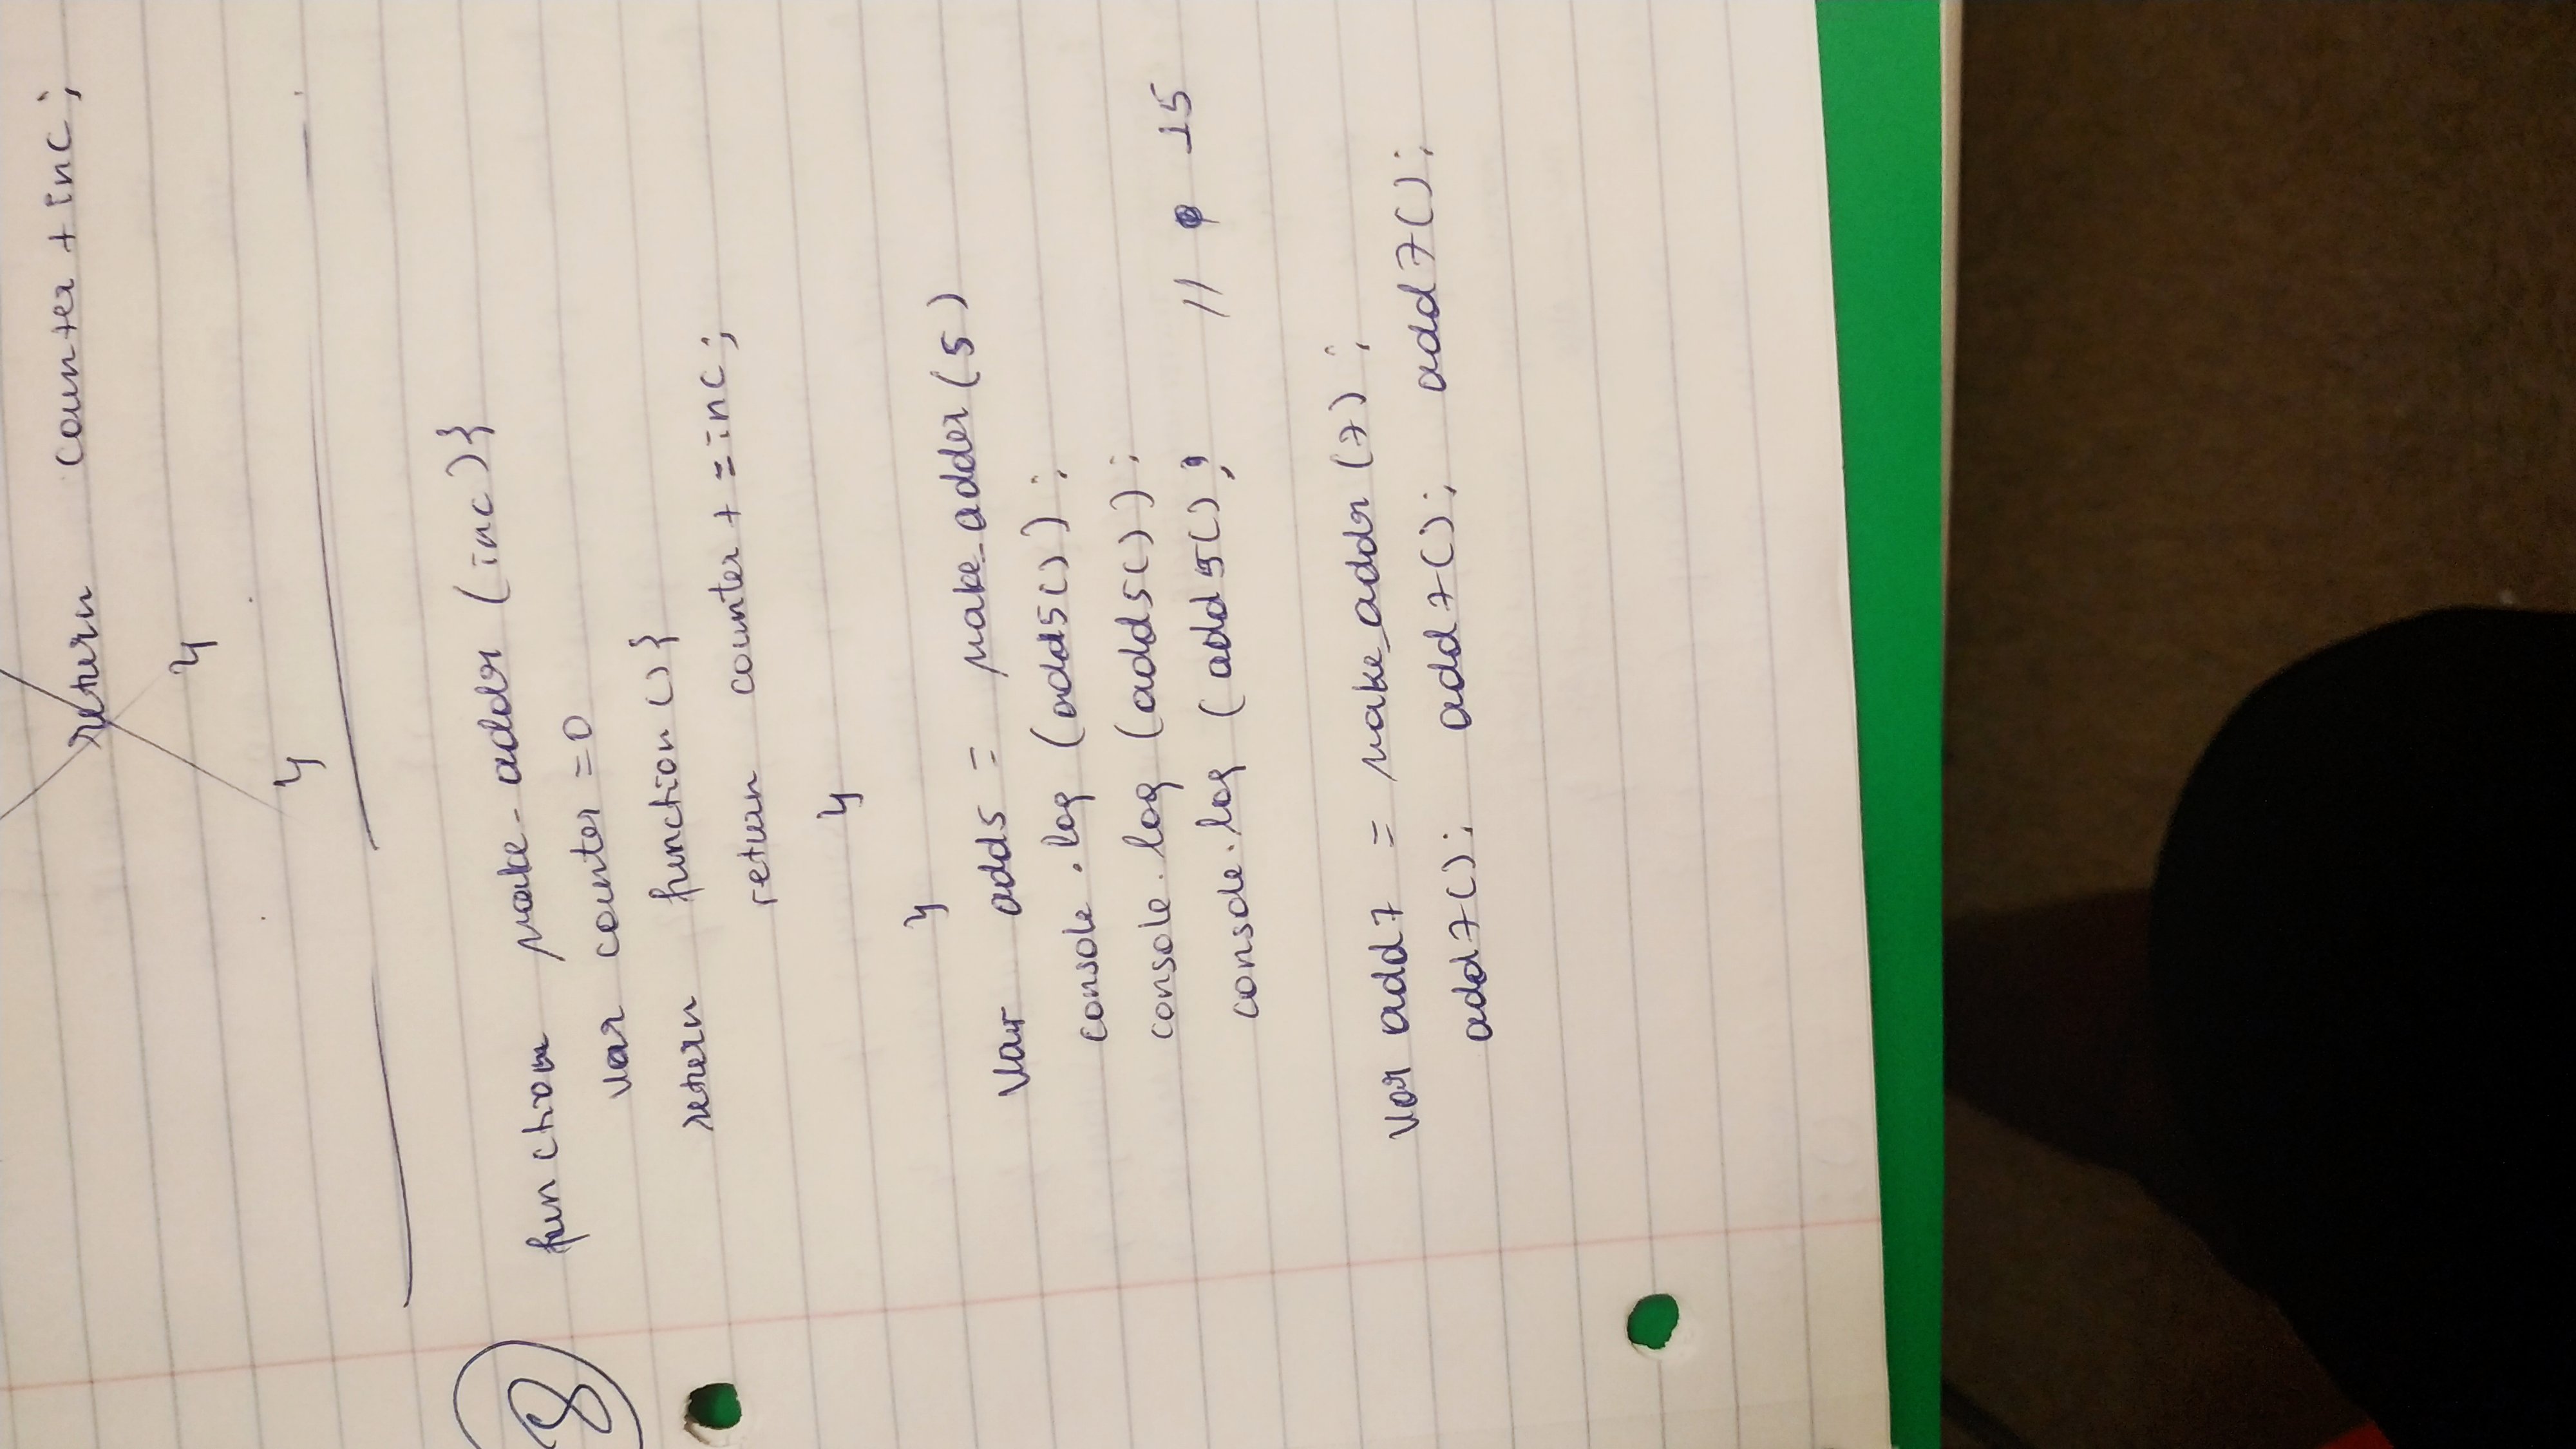 return counter + inc;
}
}
8
function make_addr (inc){
var counter = 0
return function(){
return counter + = inc;
}
}
var add5 = make_adder (5)
console.log (add5());
console.log (add5());
console.log (add5(); // 15
var add7 = make_addr (7);
add7(); add7(); add7();